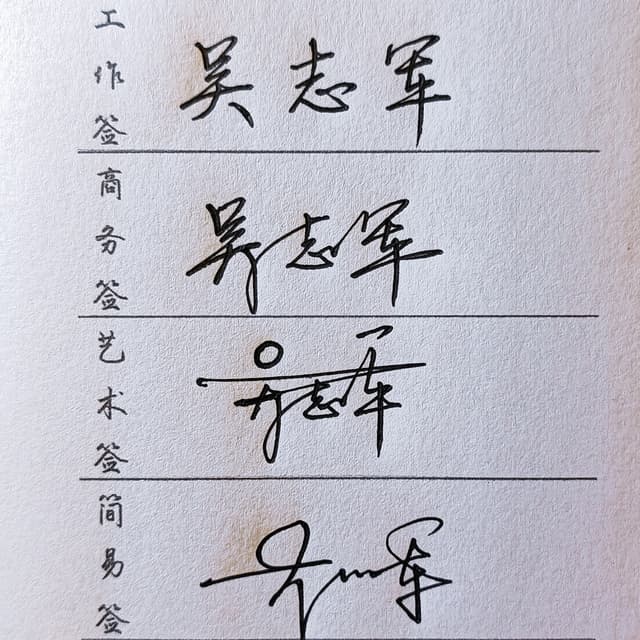 工作签 吴志军
商务签 吴志军
艺术签 吴志军
简易签 吴志军